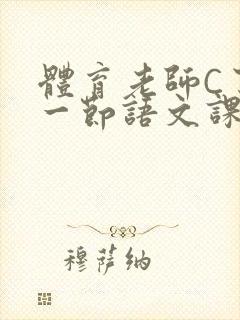 體育老師C了
一節語文課
穆薩納